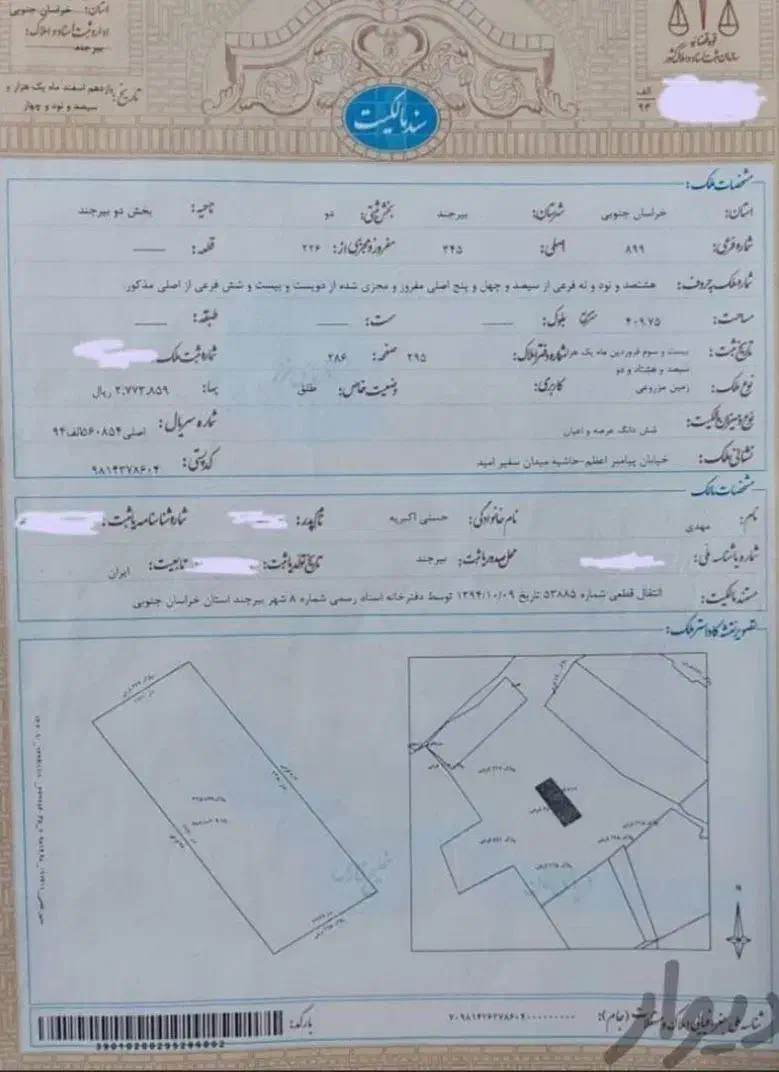 استان: خراسان جنوبی
اداره ثبت اسناد و املاک:
بیرجند
تاریخ: یازدهم اسفند ماه یک هزار و
سیصد و نود و چهار
قوه قضائیه
سازمان ثبت اسناد و املاک کشور
الف
۹۴
سند مالکیت
مشخصات ملک:
استان: خراسان جنوبی شهرستان: بیرجند بخش ثبتی: دو ناحیه: بخش دو بیرجند
شماره فرعی: ۸۹۹ اصلی: ۳۴۵ مفروز و مجزی از: ۲۲۶ قطعه:
شماره ملک به حروف: هشتصد و نود و نه فرعی از سیصد و چهل و پنج اصلی مفروز و مجزی شده از دویست و بیست و شش فرعی از اصلی مذکور.
مساحت: ۴۰۹.۷۵ بلوک: سمت: طبقه:
تاریخ ثبت: بیست و سوم فروردین ماه یک هزار سیصد و هشتاد و دو شماره دفتر املاک: ۲۹۵ صفحه: ۲۸۶ شماره ثبت ملک:
نوع ملک: زمین مزروعی کاربری: وضعیت خاص: مطلق بها: ۲,۷۷۳,۸۵۹ ریال
نوع و میزان مالکیت: شش دانگ عرصه و اعیان شماره سریال: اصلی۵۶۰۸۵۴الف۹۴
نشانی ملک: خیابان پیامبر اعظم-حاشیه میدان سفیر امید کد پستی: ۹۸۱۴۳۷۸۶۰۴
مشخصات مالک
نام: مهدی نام خانوادگی: حسنی اکبریه نام پدر: شماره شناسنامه یا ثبت:
شماره یا شناسه ملی: محل صدور یا ثبت: بیرجند تاریخ تولد یا ثبت: تابعیت: ایران
مستند مالکیت: انتقال قطعی شماره ۵۳۸۸۵ تاریخ ۱۳۹۴/۱۰/۰۹ توسط دفترخانه اسناد رسمی شماره ۸ شهر بیرجند استان خراسان جنوبی
تصویر نقشه کاداستر ملک:
N
شناسه ملی جغرافیایی املاک و مستغلات (جام): بارکد:
دیوار